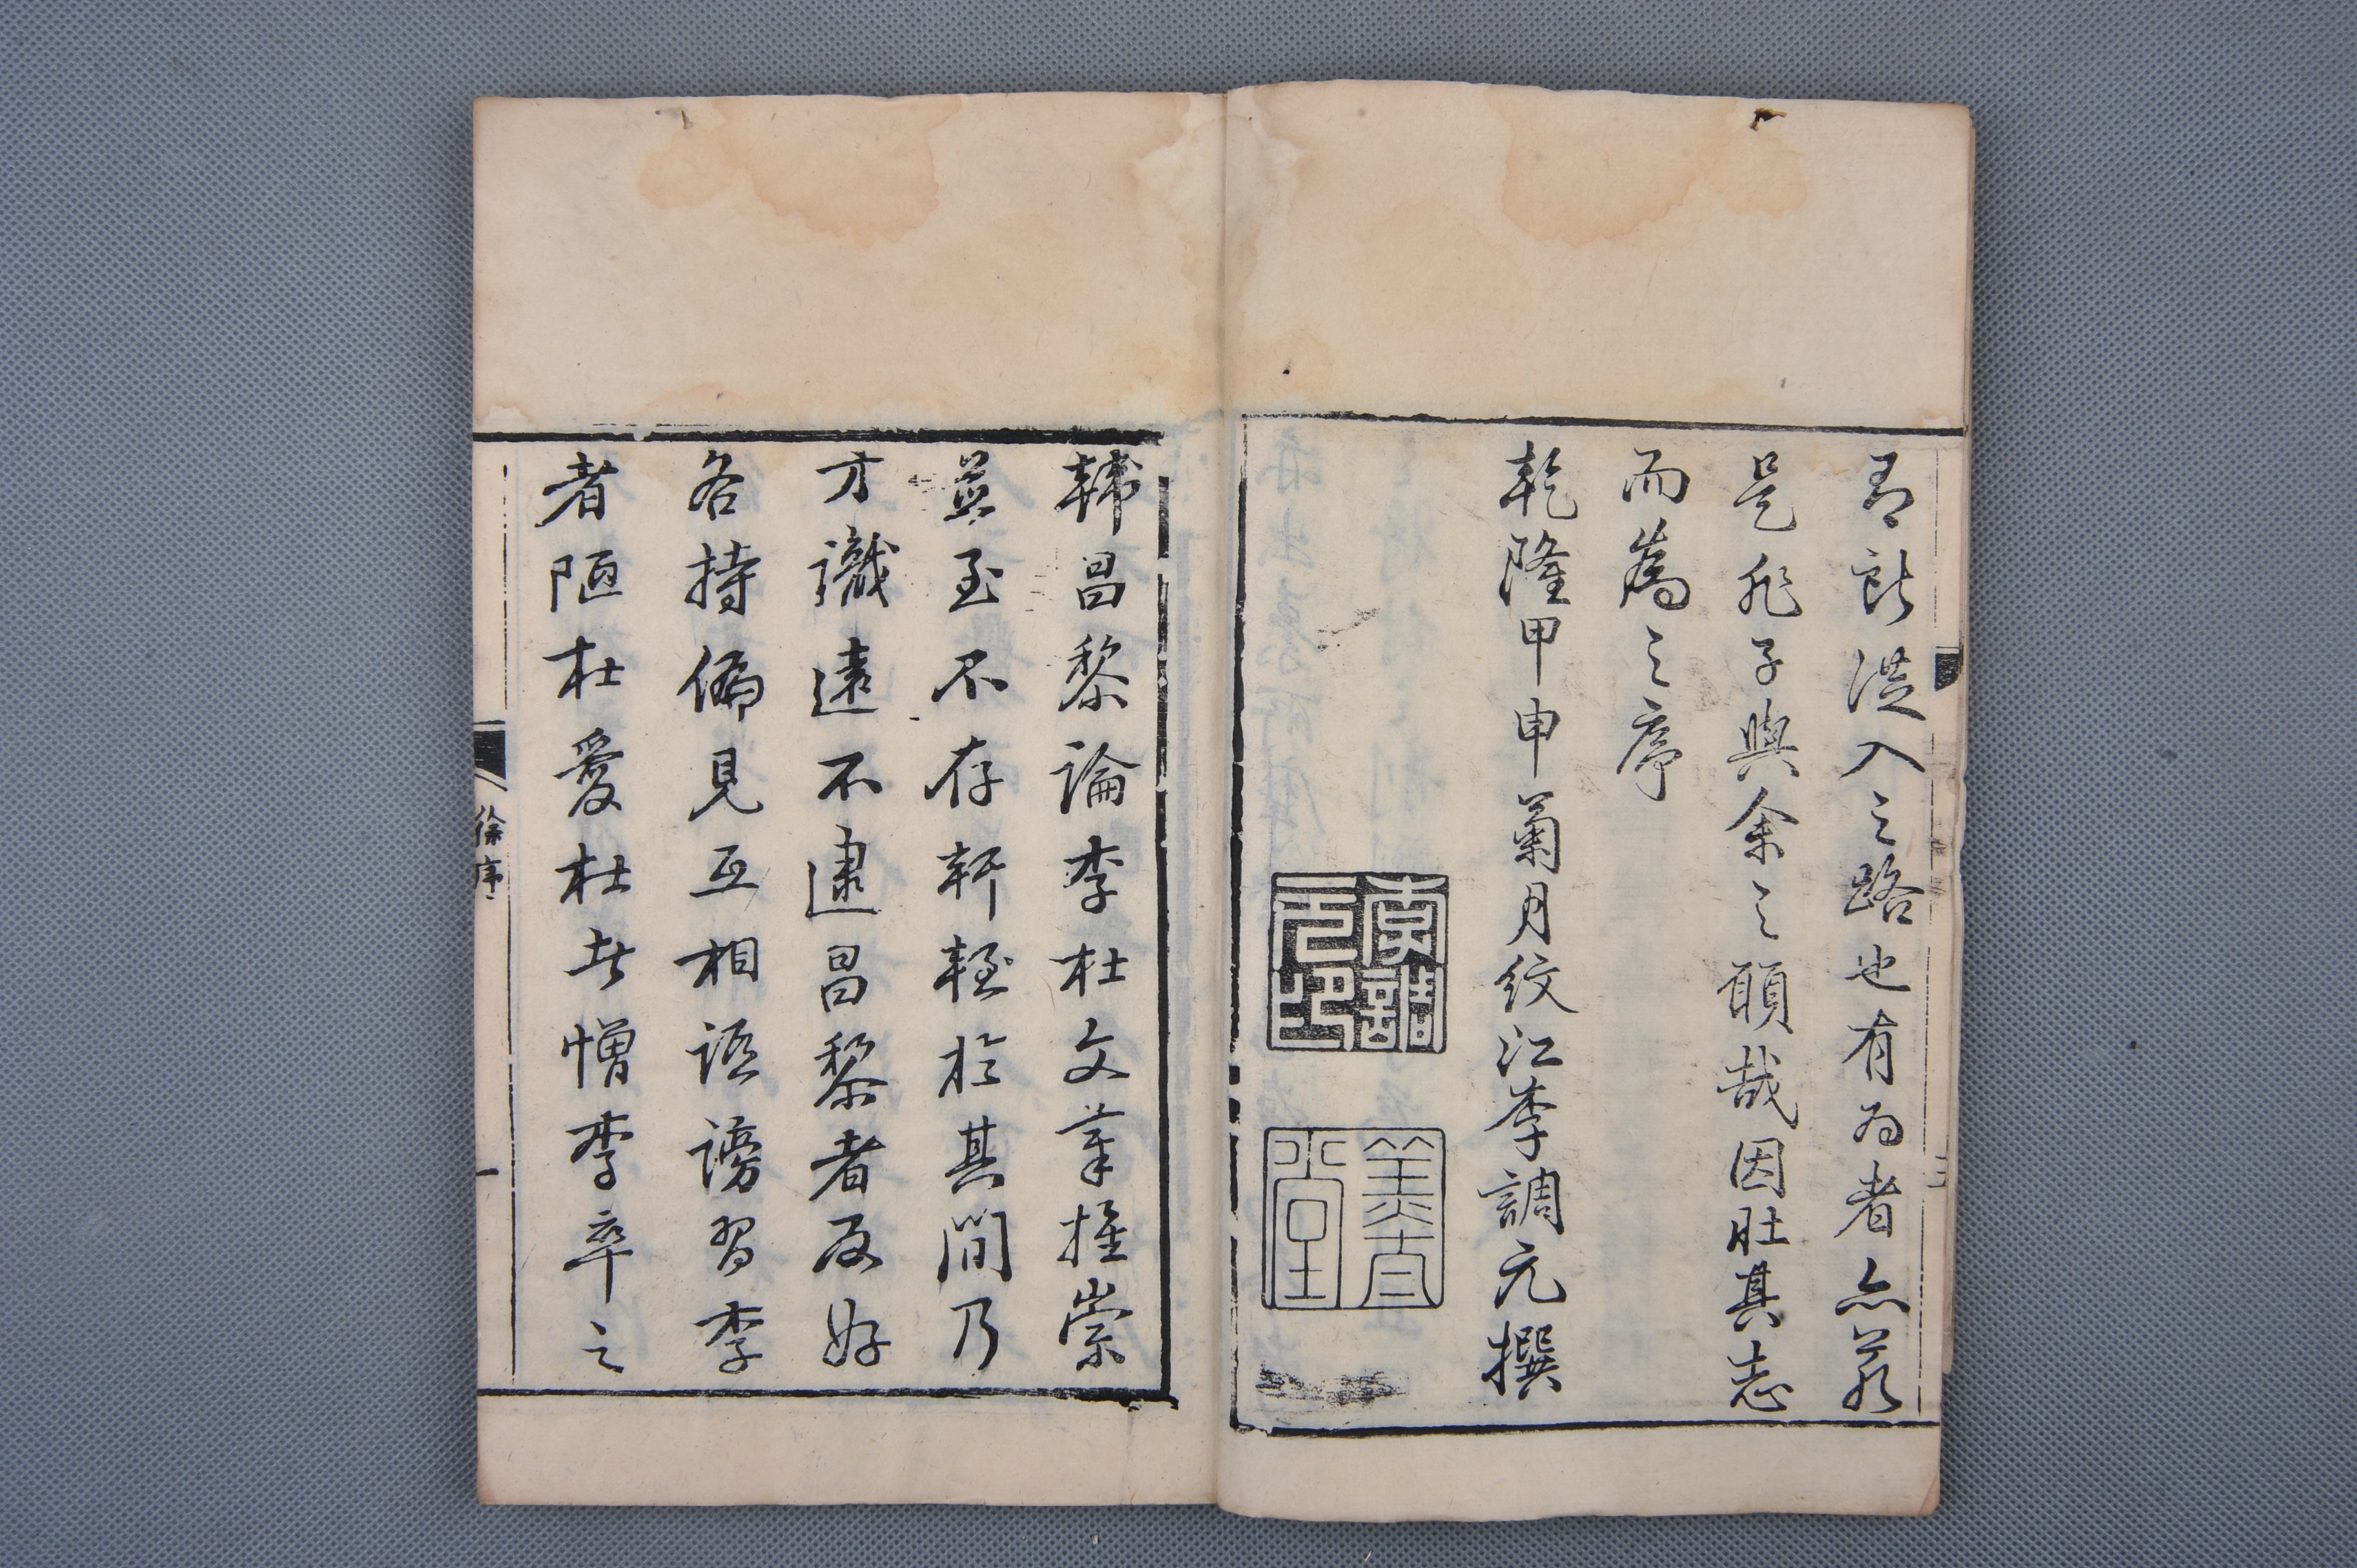 從入之路也有为者亦若
是非子與余之願哉因壯其志
而為之序
乾隆甲申菊月紋江李調元撰
李調元印
韓昌黎論李杜文章推崇
並至不存軒輊於其間乃
才識遠不逮昌黎者反好
各持偏見互相詆謗習李
者陋杜愛杜者憎李卒之
徐序
一